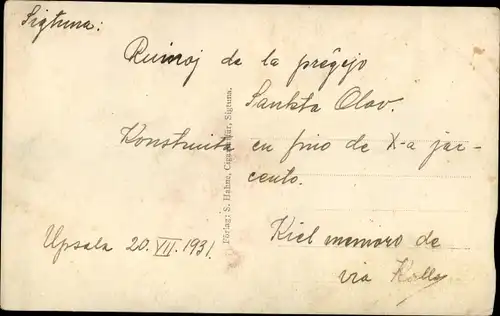 Sigtuna:
Ruinoj de la preĝejo
Sankta Olov
Konstruita en fino de X-a jar-
cento.
Kiel memoro de
via
Upsala 20.VII.1931.
Förlag: S. Hahne, Cigaraffär, Sigtuna.